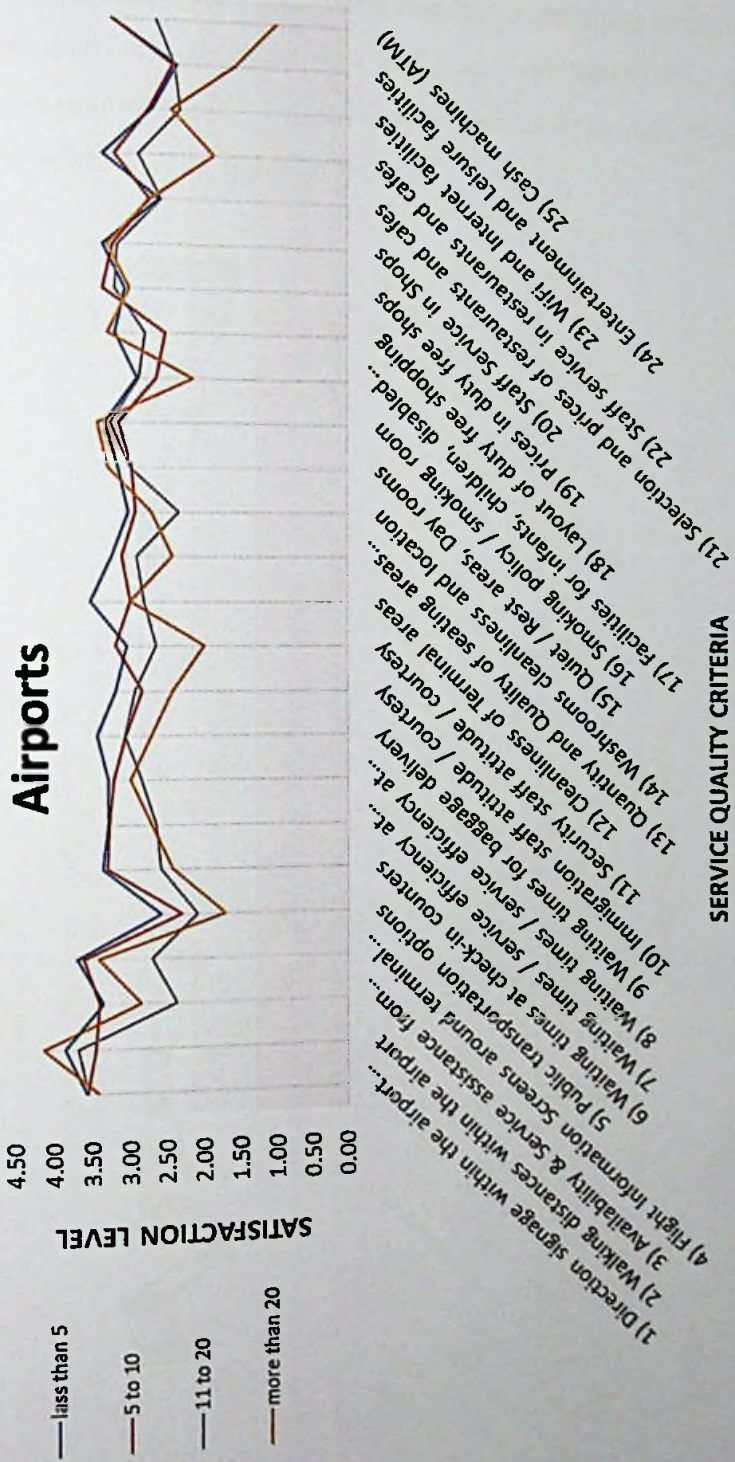 Airports
less than 5
5 to 10
11 to 20
more than 20
SATISFACTION LEVEL
4.50
4.00
3.50
3.00
2.50
2.00
1.50
1.00
0.50
0.00
1) Direction signage within the airport...
2) Walking distances within the airport
3) Availability & Service assistance from...
4) Flight Information Screens around terminal...
5) Public transportation options
6) Waiting times at check-in counters
7) Waiting times / service efficiency at...
8) Waiting times / service efficiency at...
9) Waiting times for baggage delivery
10) Immigration staff attitude / courtesy
11) Security staff attitude / courtesy
12) Cleanliness of Terminal areas
13) Quantity and Quality of seating areas...
14) Washrooms cleanliness and location
15) Quiet / Rest areas, Day rooms
16) Smoking policy / smoking room
17) Facilities for infants, children, disabled...
18) Layout of duty free shopping
19) Prices in duty free shops
20) Staff Service in Shops
21) Selection and prices of restaurants and cafes
22) Staff service in restaurants and cafes
23) WiFi and Internet facilities
24) Entertainment and Leisure facilities
25) Cash machines (ATM)
SERVICE QUALITY CRITERIA